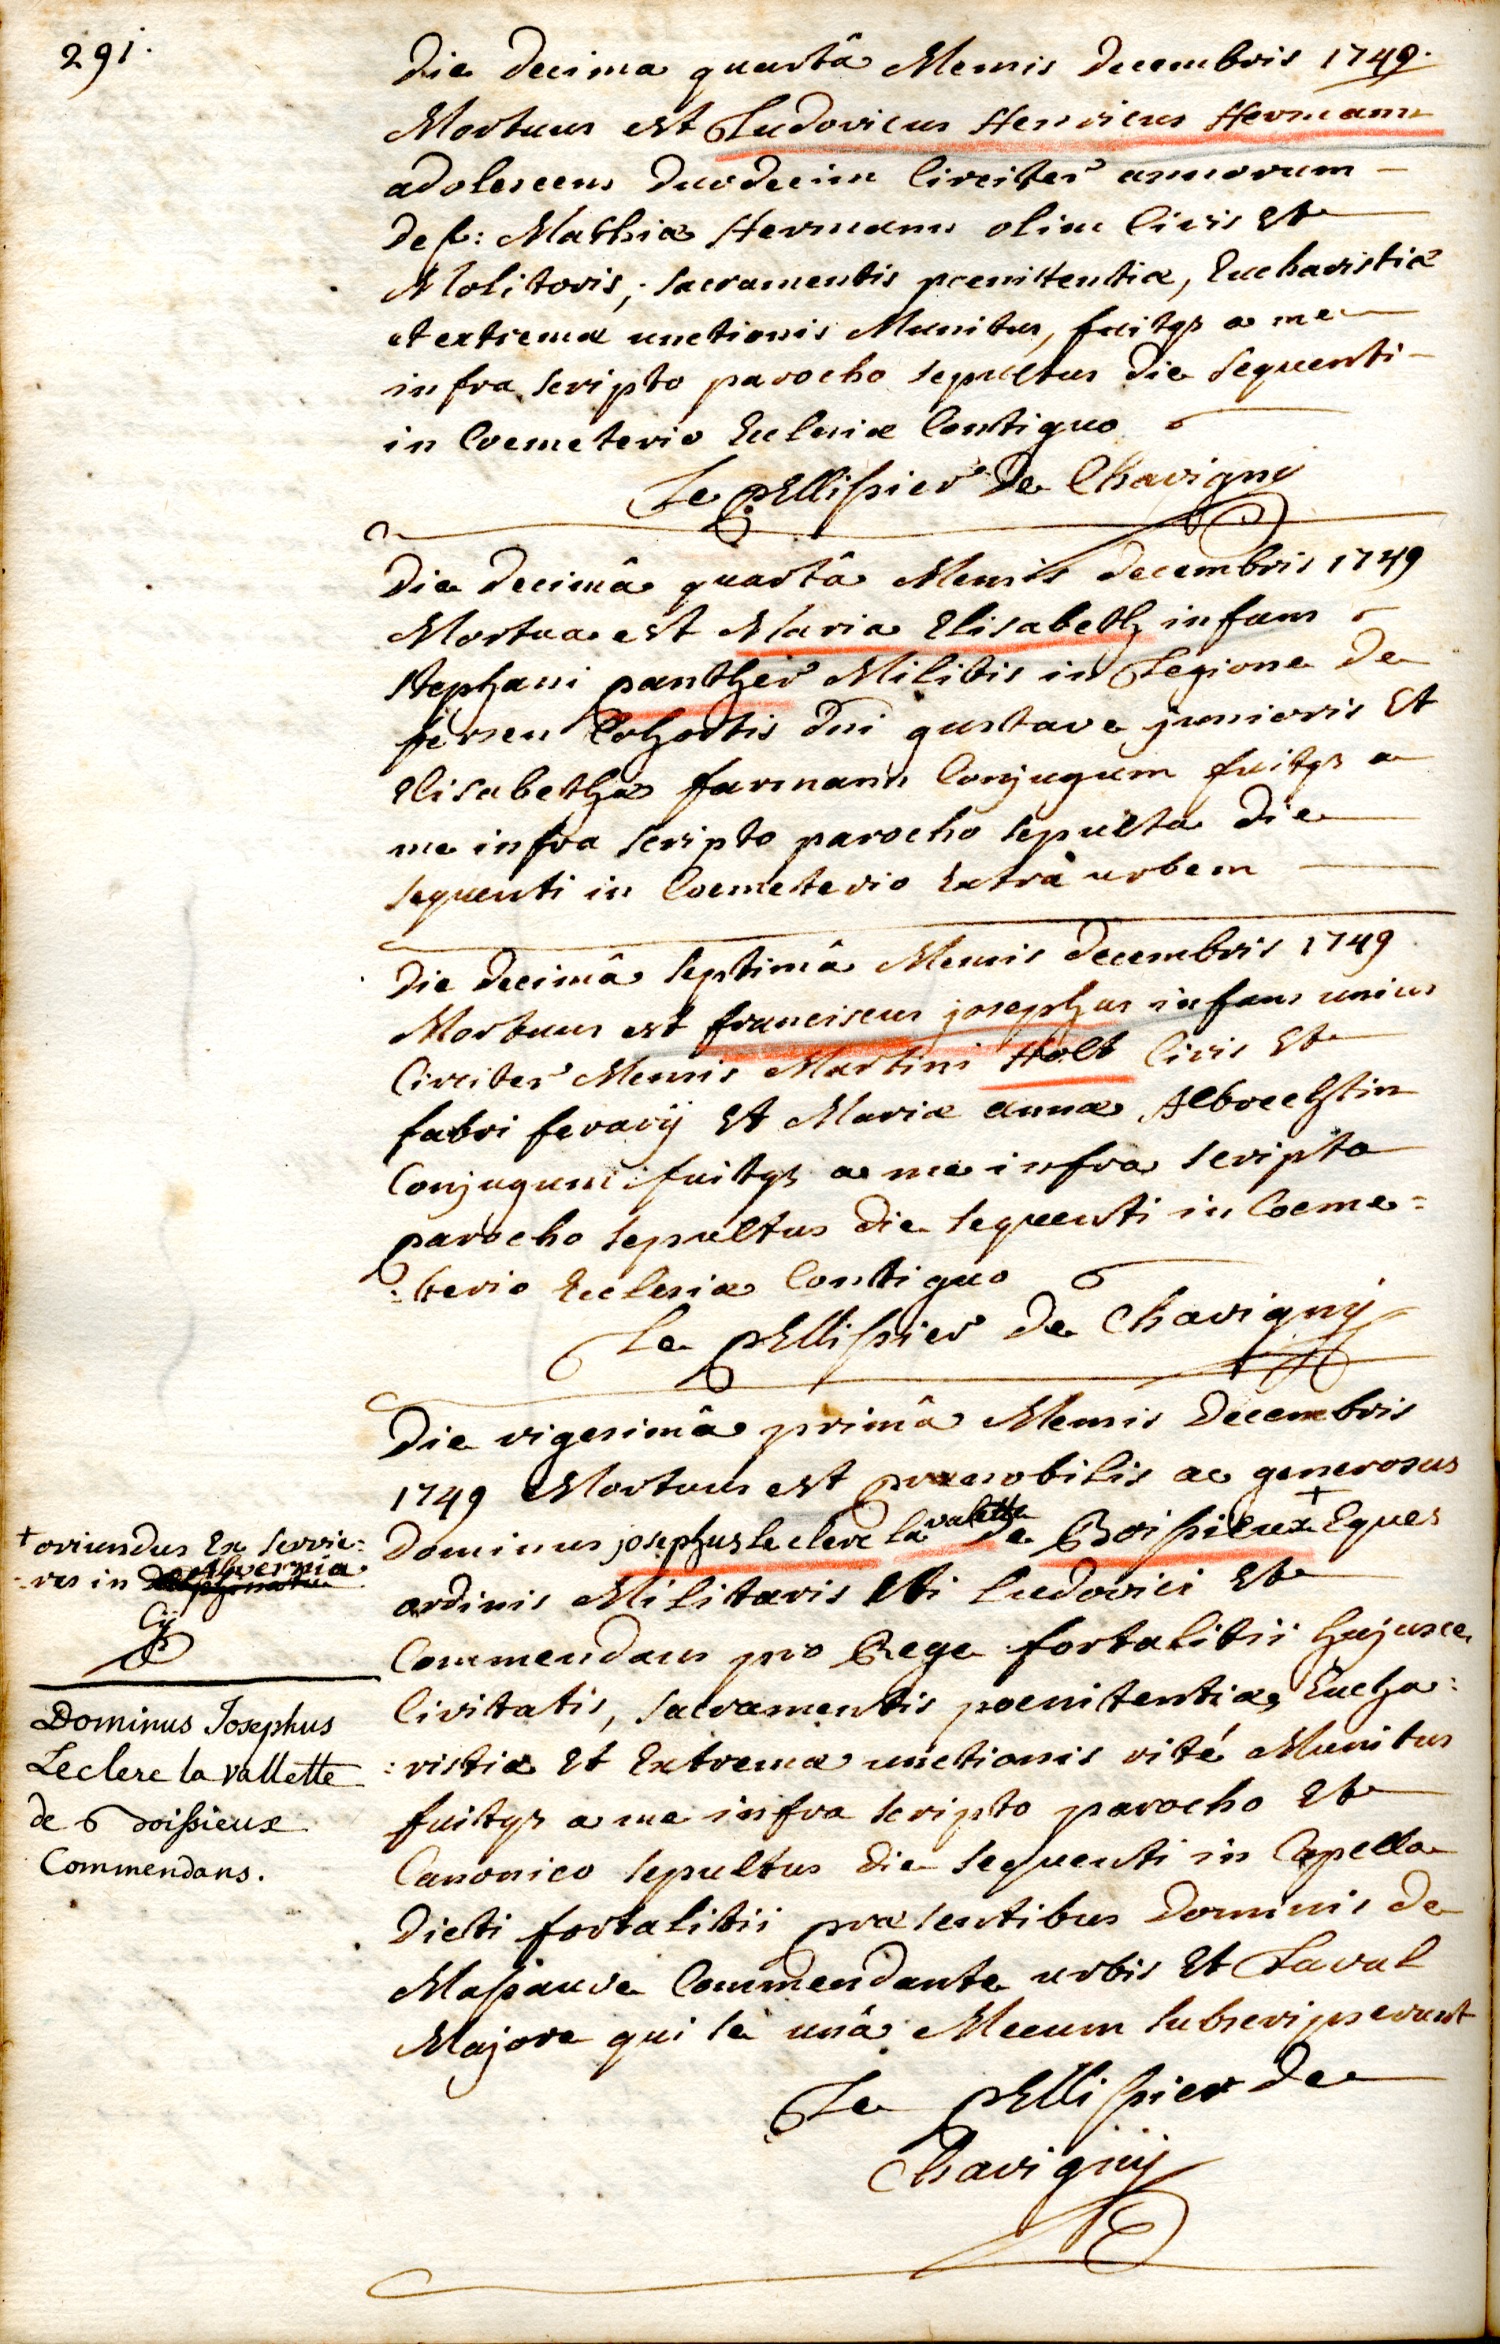 291.
Die decima quartâ Mensis Decembris 1749.
Mortuus est Ludovicus Henricus Hermann
adolescens duodecim circiter annorum
def: Mathiæ Hermann olim Civis Et
Molitoris, sacramentis pœnitentiæ, Eucharistiæ
et extremæ unctionis Munitus, fuitqs a me
infra scripto parocho sepultus die sequenti
in Coemeterio Ecclesiæ Contiguo
Le pEllissier De Chavigny
Die decimâ quartâ Mensis decembris 1749
Mortua est Maria Elisabeth infans
stephani panther Militis in Legione de
fersen Cohortis Dni gustave junioris Et
Elisabethæ farmann Conjugum fuitqs a
me infra scripto parocho sepulta die
sequenti in Coemeterio Extrà urbem
Die decimâ septimâ Mensis decembris 1749
Mortuus est franciscus josephus infans unius
Circiter Mensis Martini Holt Civis Et
fabri ferarij Et Mariæ annæ Albrechtin
Conjugum: fuitqs a me infra scripto
parocho sepultus die sequenti in Coeme=
:terio Ecclesiæ Contiguo
Le pEllissier de Chavigny
Die vigesimâ primâ Mensis Decembris
1749 Mortuus est prænobilis ac generosus
valette
Dominus josephus le clerc la de Boissieux + Eques
ordinis Militaris Sti Ludovici Et
Commendans pro Rege fortalitii hujusce
Civitatis, sacramentis poenitentiæ, Eucha:
:ristiæ Et Extremæ unctionis rité Munitus
fuitqs a me infra scripto parocho Et
Canonico sepultus die sequenti in Capella
dicti fortalitii præsentibus Dominis de
Massauve Commendante urbis Et Laval
Majore qui se unâ Mecum subscripserunt
Le pEllissier de
Chavigny
+ oriundus Ex servie:
Alvernia
:res in
Dominus Josephus
Leclerc la vallette
de Boissieux
Commendans.